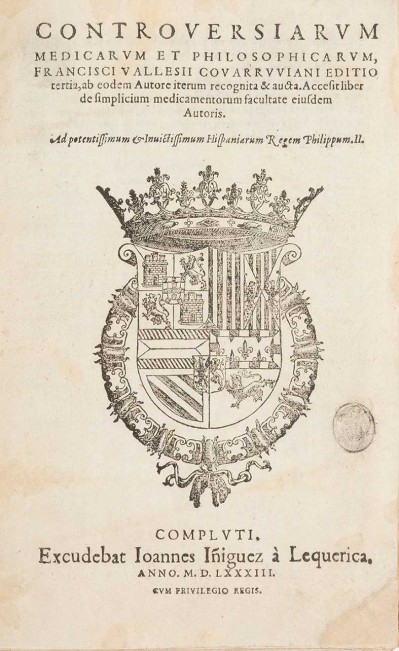 CONTROVERSIARVM
MEDICARVM ET PHILOSOPHICARVM,
FRANCISCI VALLESII COVARRVVIANI EDITIO
tertia, ab eodem Autore iterum recognita & aucta. Accesit liber
de simplicium medicamentorum facultate eiusdem
Autoris.
Ad potentissimum & Inuictissimum Hispaniarum Regem Philippum. II.
COMPLVTI.
Excudebat Ioannes Iñiguez à Lequerica.
ANNO. M. D. LXXXIII.
CVM PRIVILEGIO REGIS.